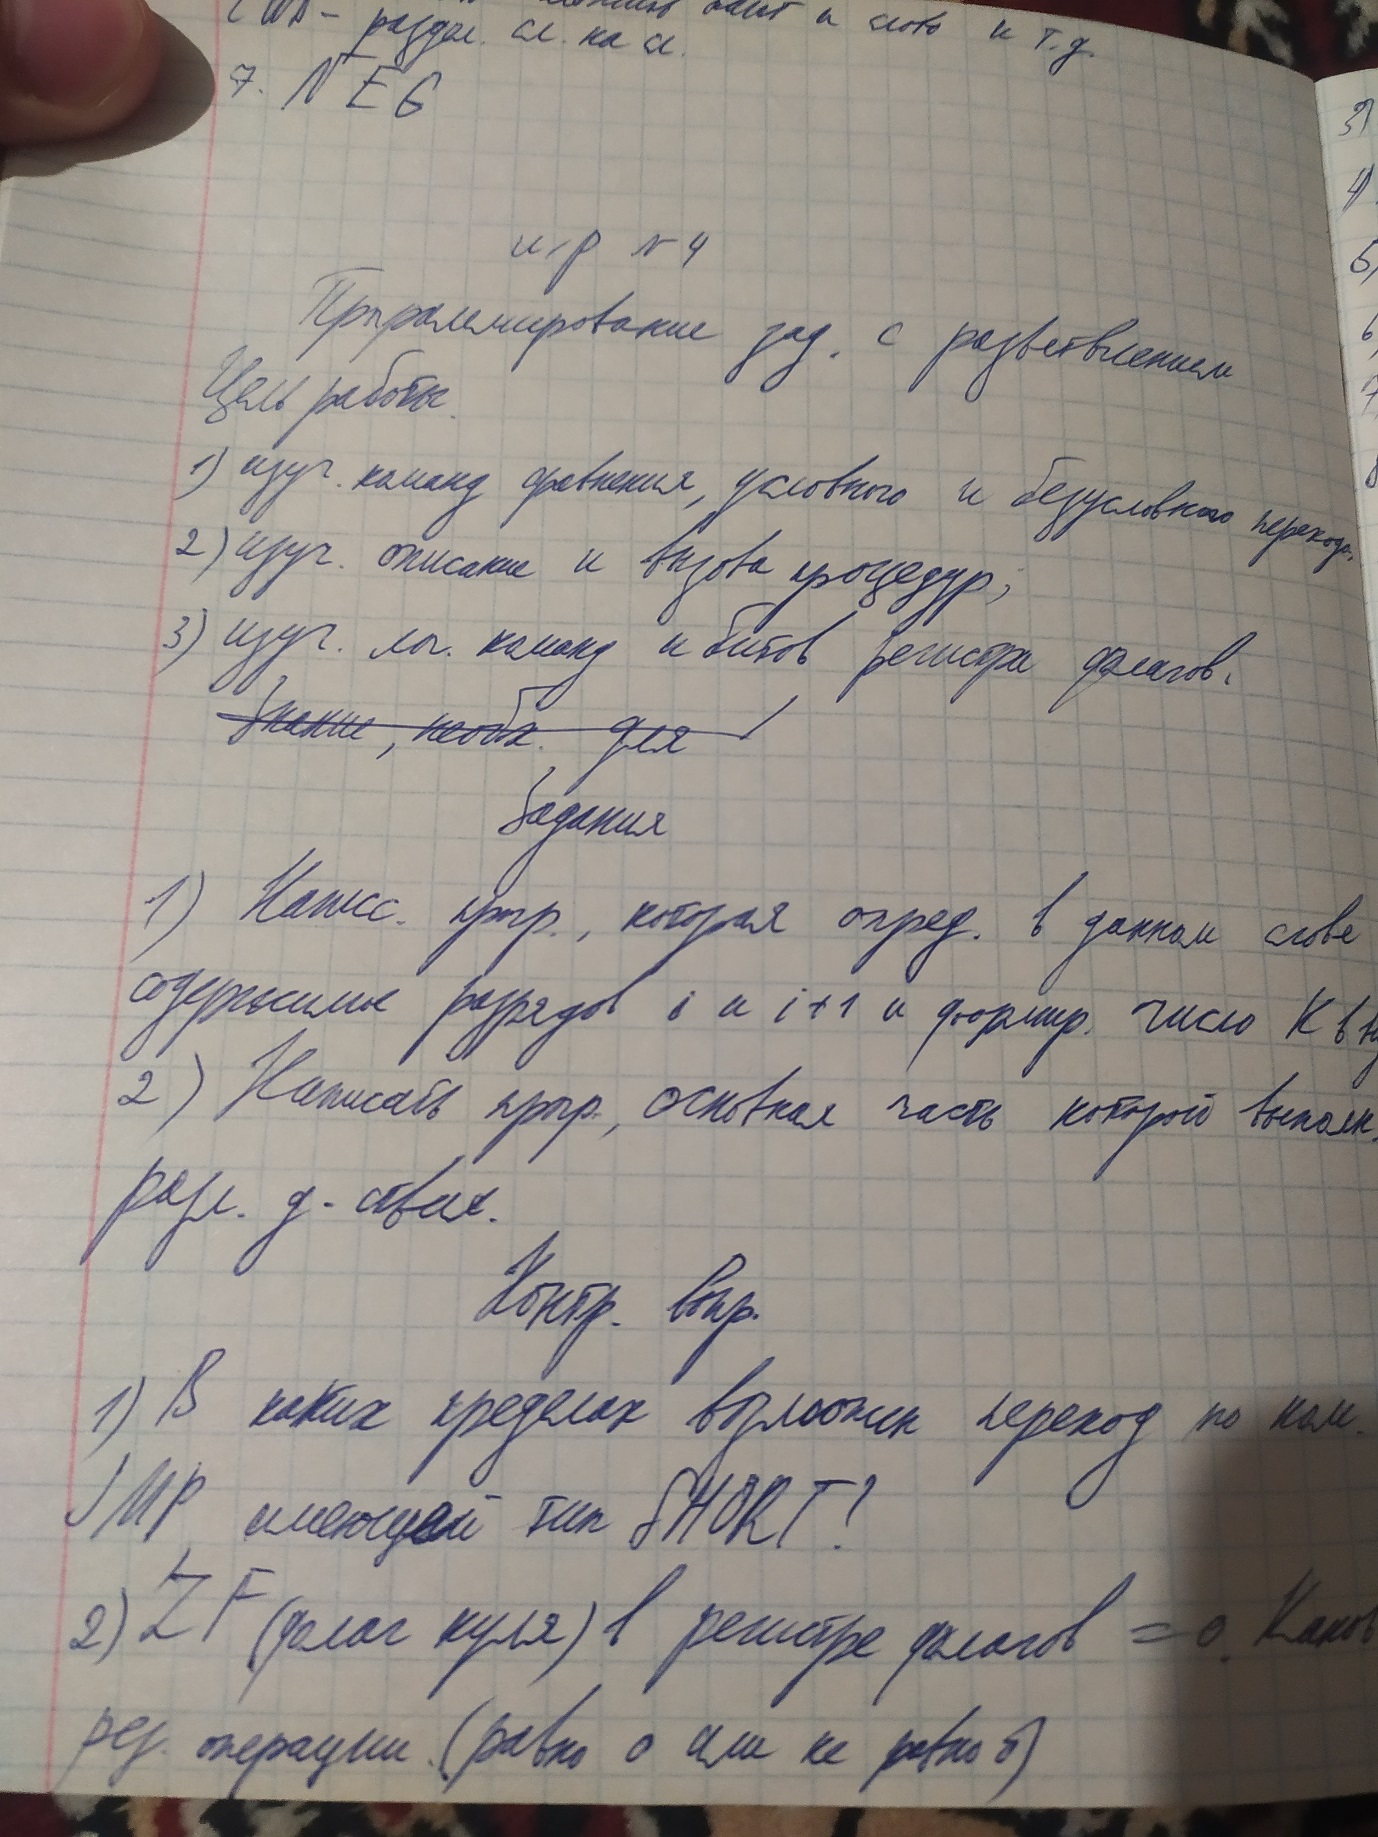 и слово и т.д.
раздел. сл. на сл.
7. NEG
л/р №4
Программирование зад. с разветвлением
Цель работы.
1) изуч. команд сравнения, условного и безусловного перехода.
2) изуч. описание и вызова процедур;
3) изуч. лог. команд и битов регистра флагов.
Знание, необх. для
Задания
1) Написс. прогр., которая опред. в данном слове
содержимые разрядов i и i+1 и формир. число К в
2) Написать прогр., основная часть которой выполн.
разл. д-ствия.
Контр. вопр.
1) В каких пределах возможен переход по ком.
JMP, имеющей тип SHORT?
2) ZF (флаг нуля) в регистре флагов = 0. Каков
рез. операции. (равно 0 или не равно 0)
3)
4)
5)
6)
7)
8